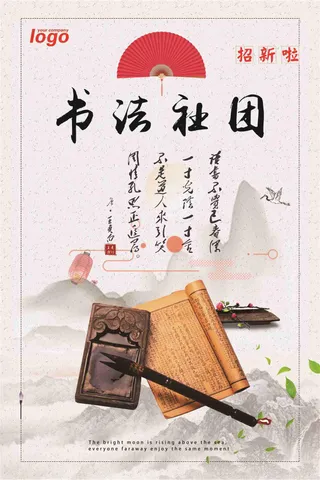 your company
logo
招新啦
书法社团
读书不觉已春深
一寸光阴一寸金
不是道人来引笑
周情孔思正追寻
唐·王贞白
The bright moon is rising above the sea,
everyone faraway enjoy the same moment